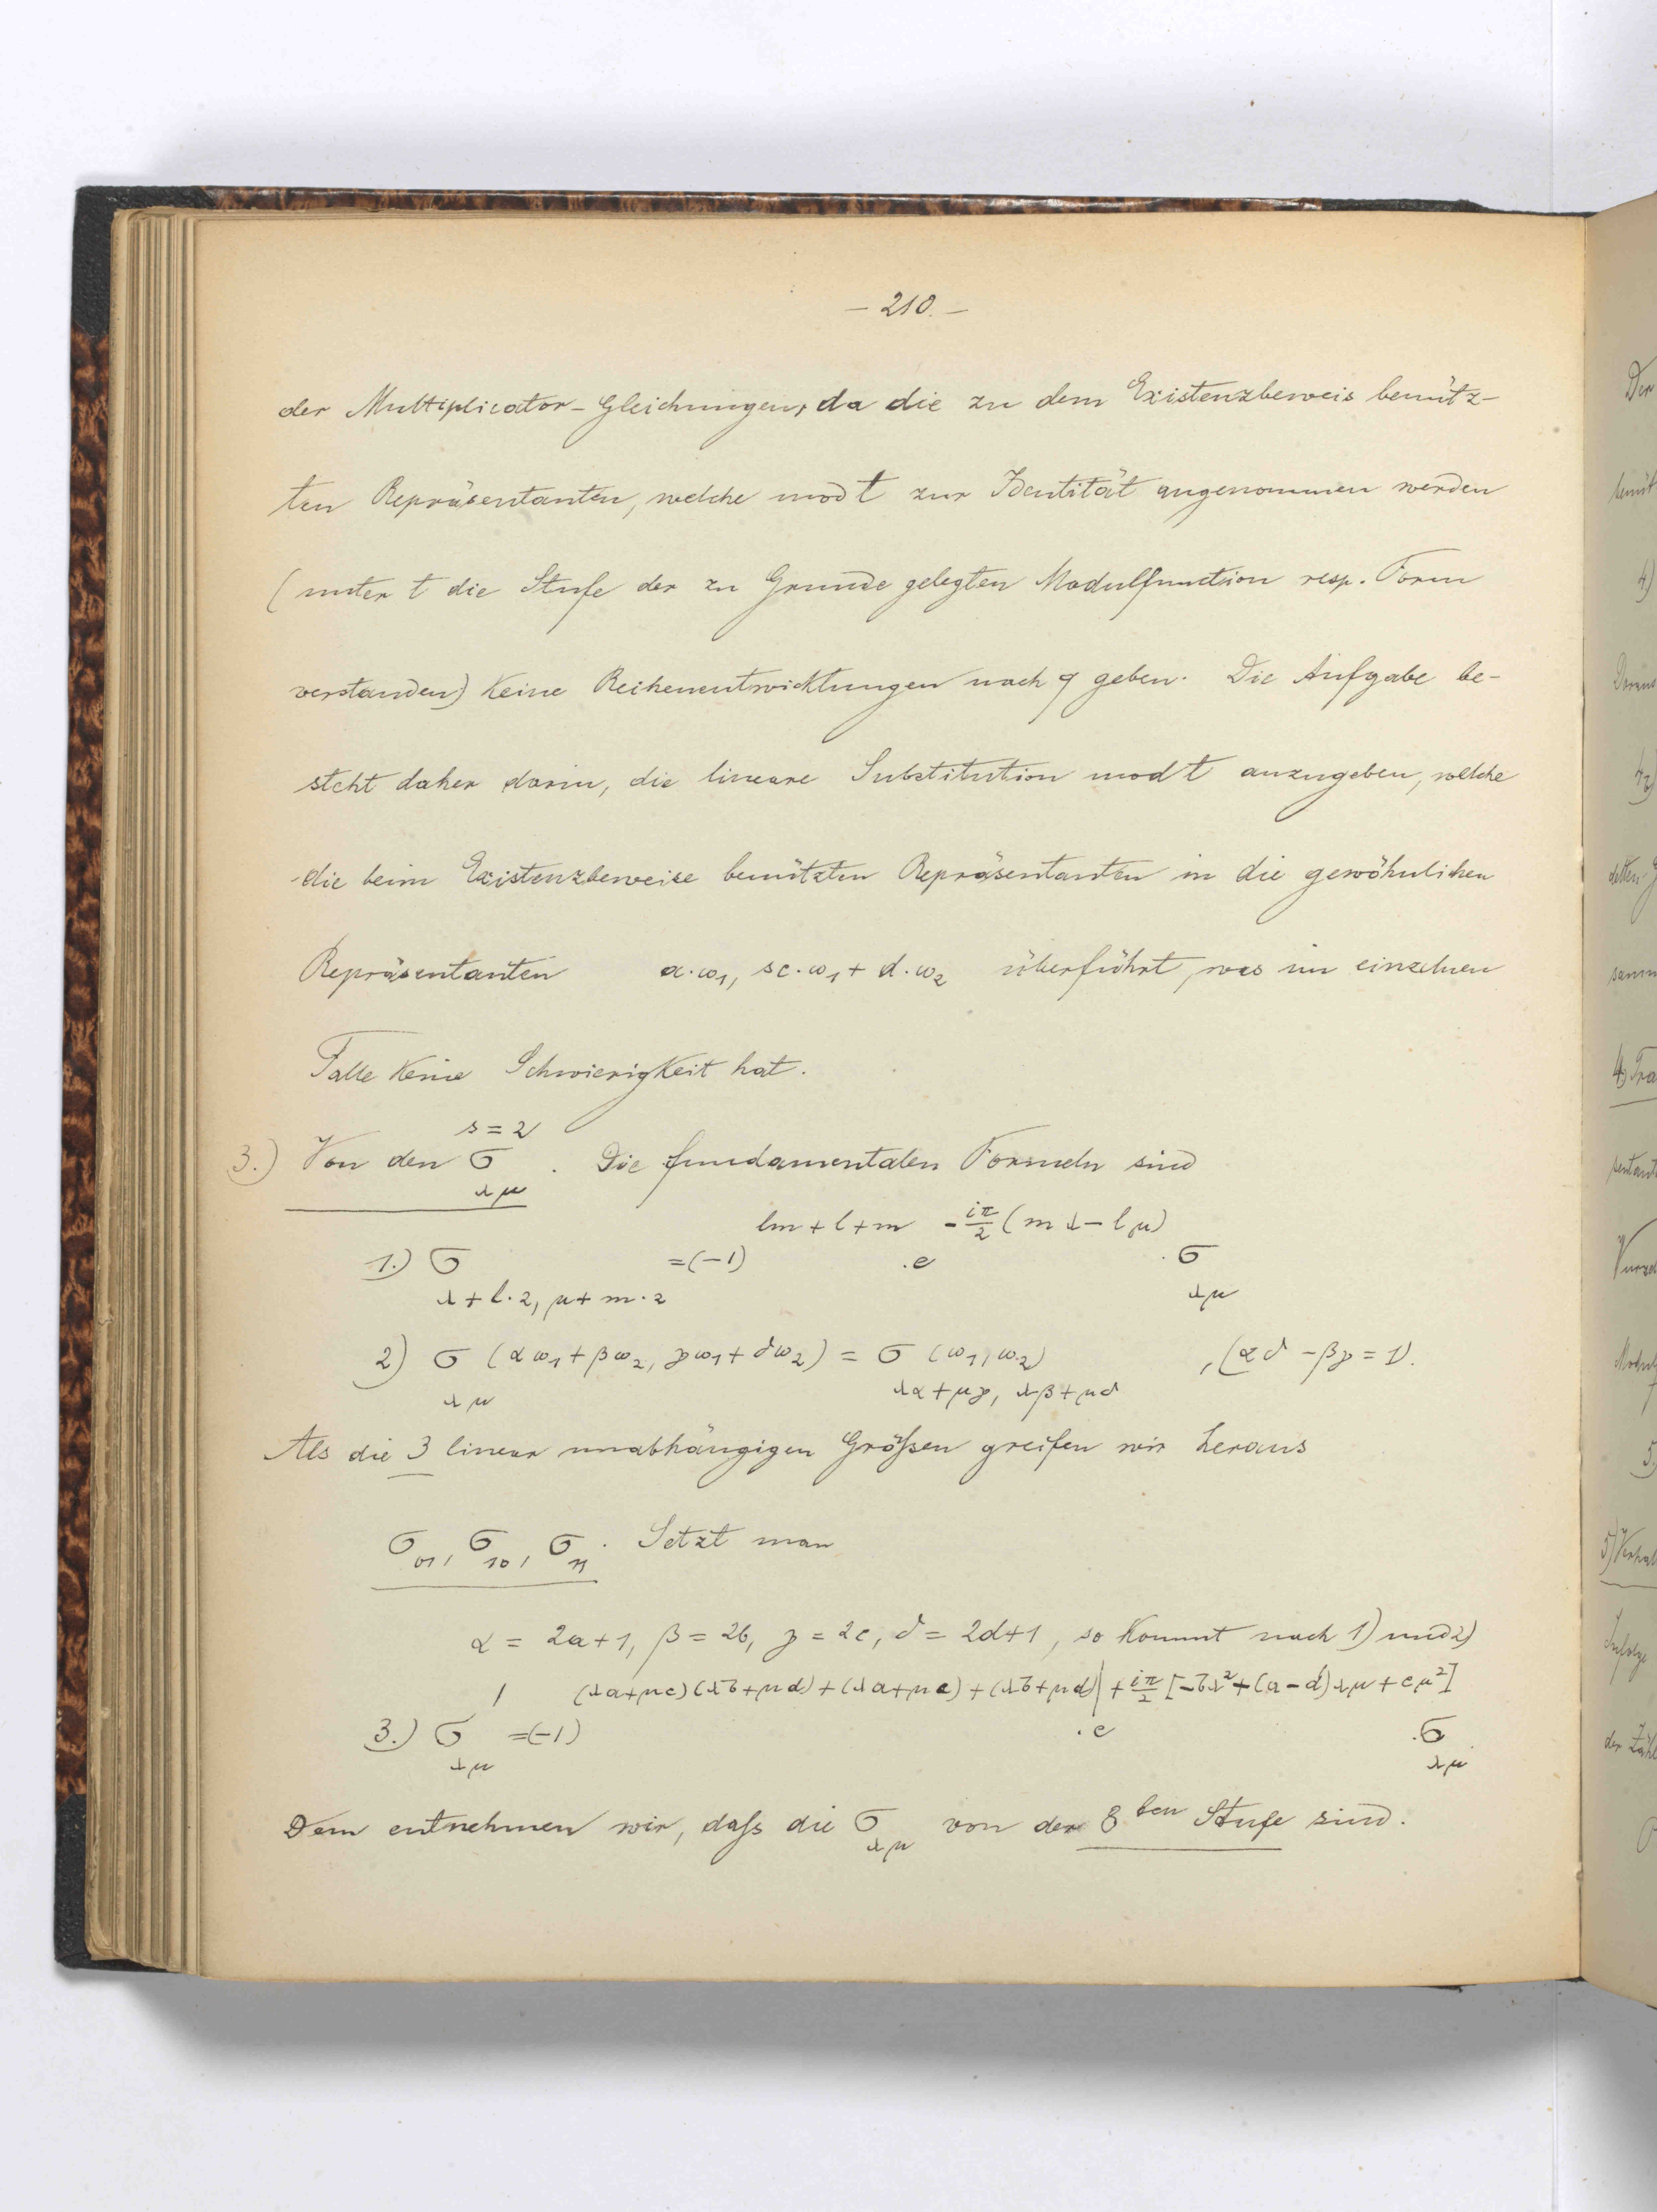 – 210. –
der Multiplicator-Gleichungen, da die zu dem Existenzbeweis benütz-
ten Repräsentanten, welche mod t zur Identität angenommen werden
(unter t die Stufe der zu Grunde gelegten Modulfunction resp. Form
verstanden) keine Reihenentwicklungen nach q geben. Die Aufgabe be-
steht daher darin, die lineare Substitution mod t anzugeben, welche
die beim Existenzbeweise benützten Repräsentanten in die gewöhnlichen
Repräsentanten a·ω₁, sc·ω₁ + d·ω₂ überführt, was im einzelnen
Falle keine Schwierigkeit hat.
s = 2
3.) Von den σ_λμ. Die fundamentalen Formeln sind
1.) σ_{λ+l·2, μ+m·2} = (-1)^{lm+l+m} · e^{-iπ/2 (mλ-lμ)} · σ_λμ
2) σ_λμ (αω₁ + βω₂, γω₁ + δω₂) = σ_{λα+μγ, λβ+μδ} (ω₁, ω₂), (αδ - βγ = 1).
Als die 3 linear unabhängigen Größen greifen wir heraus
σ₀₁, σ₁₀, σ₁₁. Setzt man
α = 2a+1, β = 2b, γ = 2c, δ = 2d+1, so kommt nach 1) und 2)
3.) σ'_λμ = (-1)^{(λa+μc)(λb+μd)+(λa+μc)+(λb+μd)} · e^{+iπ/2 [-bλ²+(a-d)λμ+cμ²]} · σ_λμ.
Dem entnehmen wir, daß die σ_λμ von der 8ten Stufe sind.
Der
4)
5.